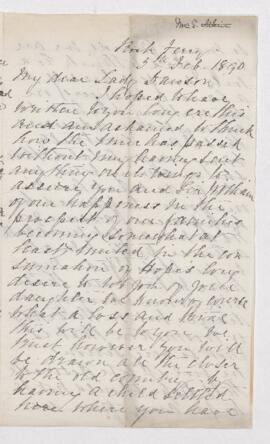 Mrs S. Atkin
Rock Ferry
5th Feb. 1890
My dear Lady Dawson
I hoped to have
written to you long ere this
and am ashamed to think
how the time has passed
without my having sent
anything on
assure you and Sir William
of our happiness in the
prospect of our families
becoming somewhat at
least united in the con
sumation of hopes long
desire to both of your
daughter Eva. I know of course
what a loss and trial
this will be to you. We
trust however you will
be drawn all the closer
to the old country by
having a child settled
here where you have